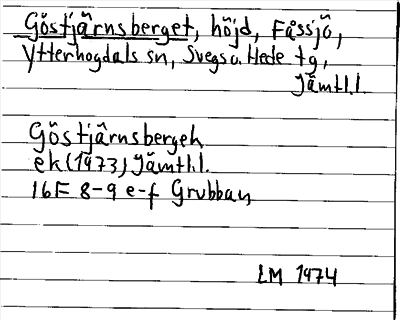 Göstjärnsberget, höjd, Fåssjö,
Ytterhogdals sn, Svegs o. Hede tg,
Jämtl.l.
Göstjärnsberget
ek (1973) Jämtl.l.
16F 8-9 e-f Grubban
LM 1974